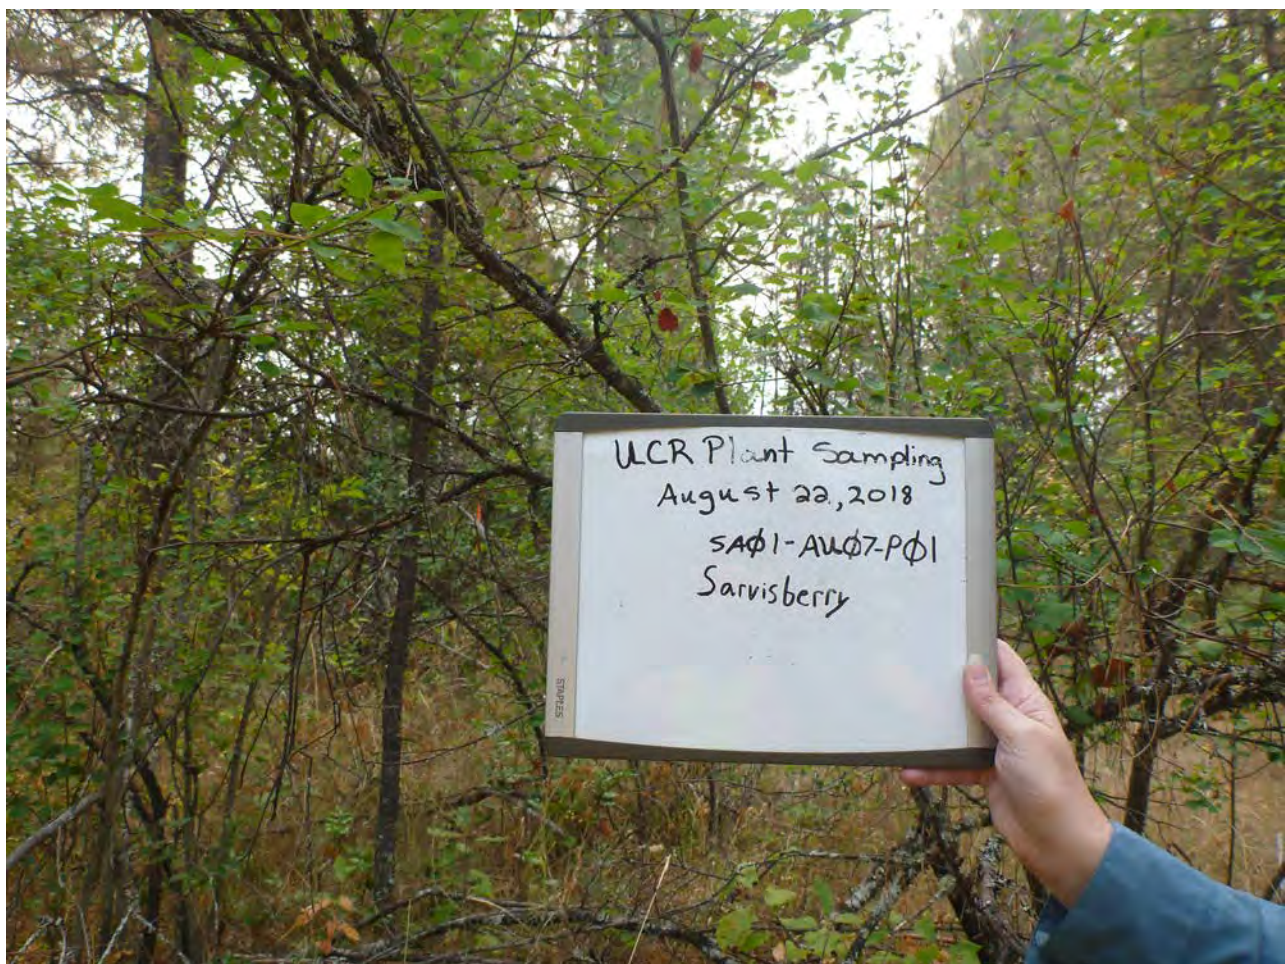 UCR Plant Sampling
August 22, 2018
SAØ1-AUØ7-PØ1
Sarvisberry
STAPLES